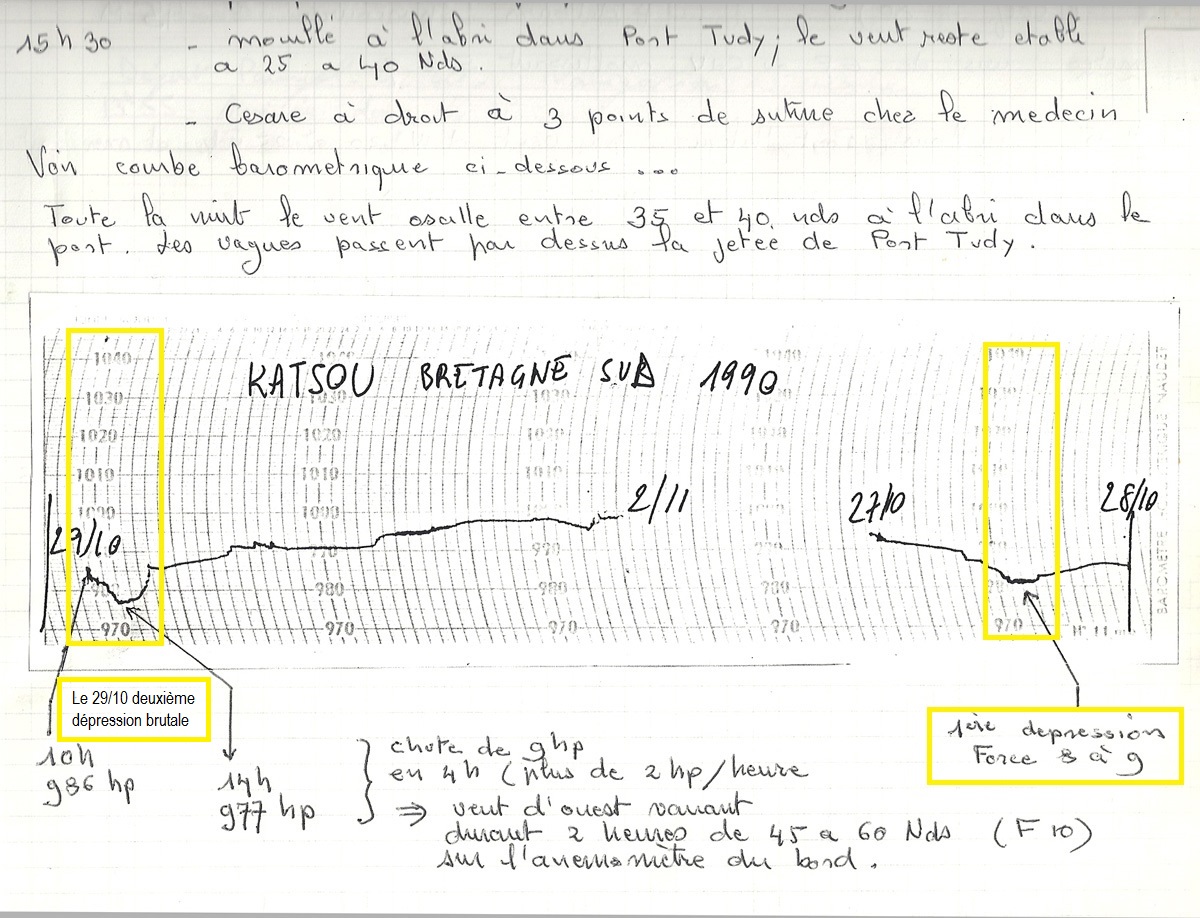 15h30 - mouillé à l'abri dans Port Tudy; le vent reste etabli
a 25 a 40 Nds.
- Cesare à droit à 3 points de suture chez le medecin
Voir courbe barometrique ci-dessous ...
Toute la nuit le vent oscille entre 35 et 40 nds à l'abri dans le
port. Les vagues passent par dessus la jetée de Port Tudy.
KATSOU BRETAGNE SUD 1990
1040
1030
1020 1020
1010 1010 1010
1000 1000
29/10 2/11 27/10 28/10
990
980 980 980
970 970 970 970 970
Le 29/10 deuxième
dépression brutale
1ère depression
Force 8 à 9
10h
986 hp
14h
977 hp
chute de 9hp
en 4h (plus de 2 hp/heure
⇒ vent d'ouest variant
durant 2 heures de 45 a 60 Nds (F 10)
sur l'anemomètre du bord.